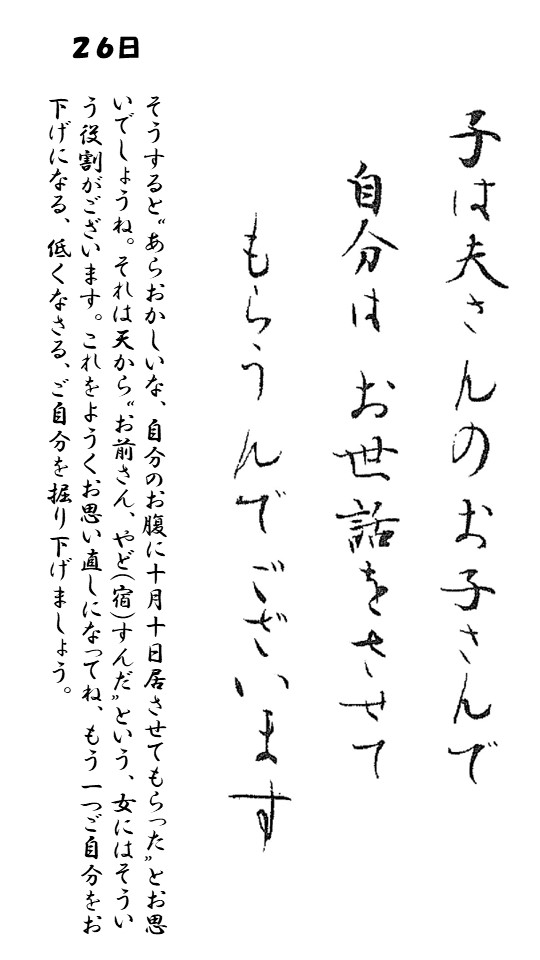 26日
子は夫さんのお子さんで
自分は お世話をさせて
もらうんでございます
そうすると“あらおかしいな、自分のお腹に十月十日居させてもらった”とお思
いでしょうね。それは天から“お前さん、やど(宿)すんだ”という、女にはそうい
う役割がございます。これをようくお思い直しになってね、もう一つご自分をお
下げになる、低くなさる、ご自分を掘り下げましょう。